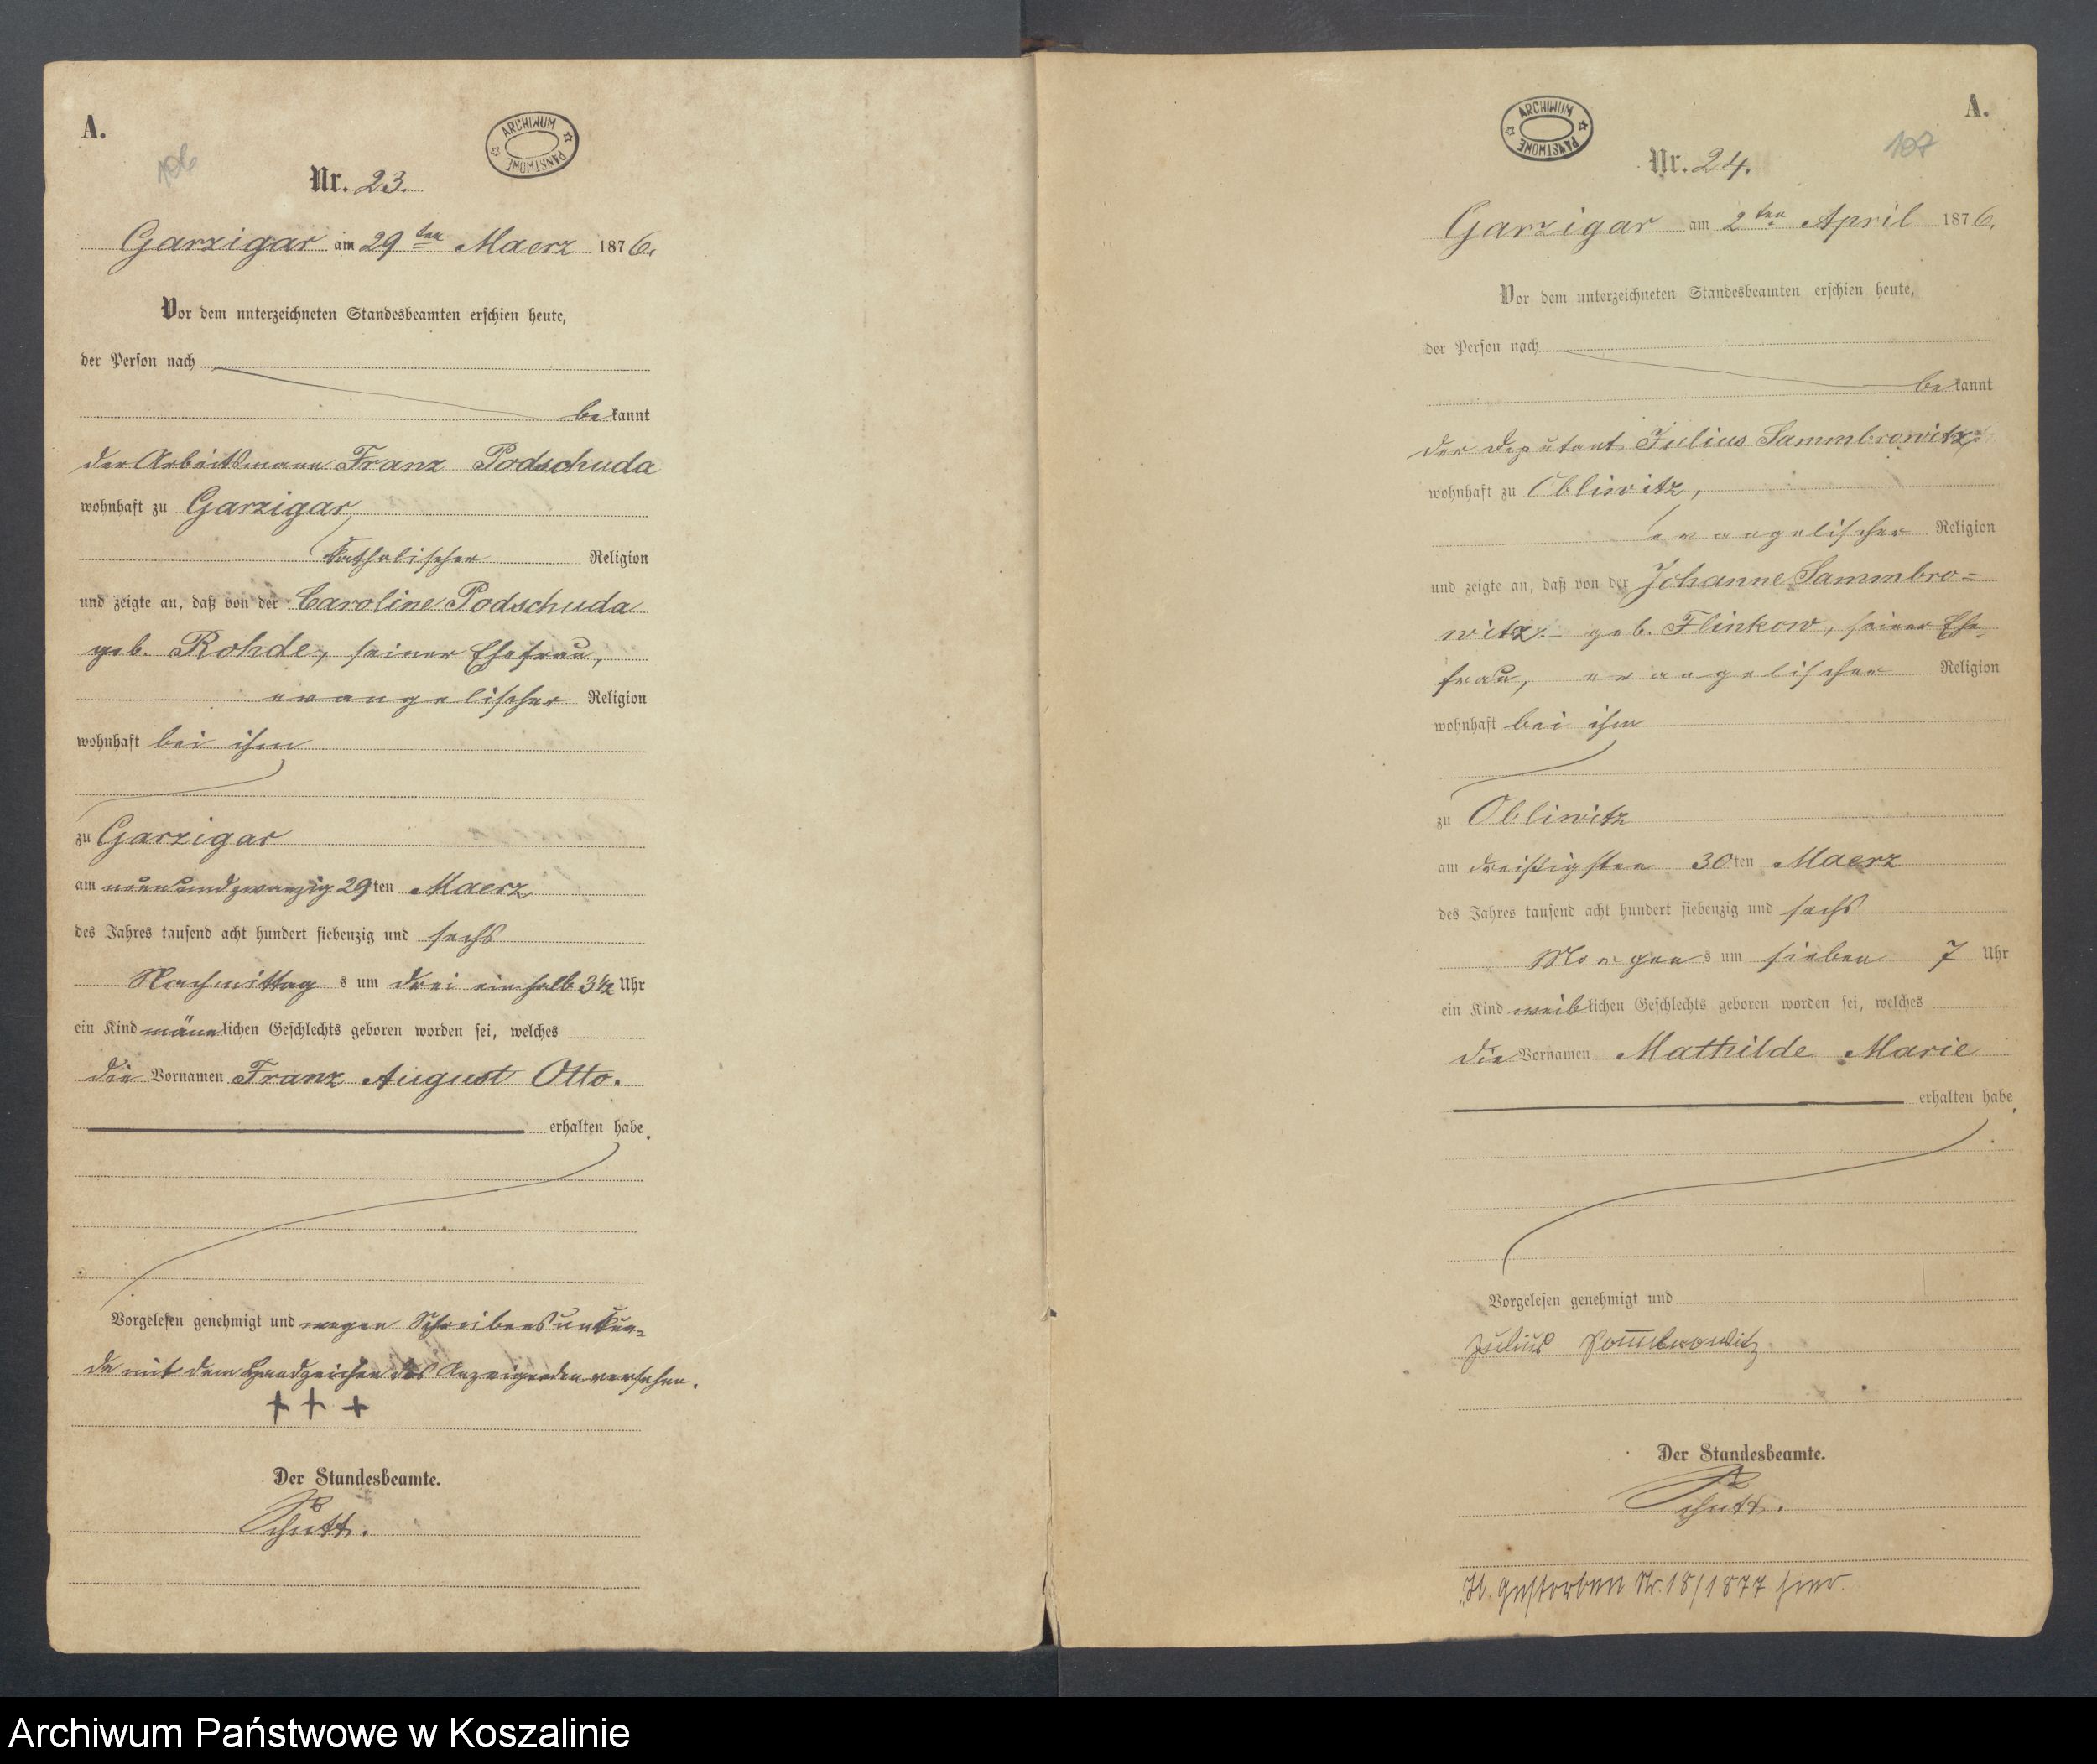 A.
106
ARCHIWUM PAŃSTWOWE
Nr. 23.
Garzigar am 29ten Maerz 1876.
Vor dem unterzeichneten Standesbeamten erschien heute,
der Person nach
bekannt
der Arbeitsmann Franz Podschuda
wohnhaft zu Garzigar,
katholischer Religion
und zeigte an, daß von der Caroline Podschuda
geb. Rohde, seiner Ehefrau,
evangelischer Religion
wohnhaft bei ihm
zu Garzigar
am neunundzwanzig 29ten Maerz
des Jahres tausend acht hundert siebenzig und sechs
Nachmittags um drei ein halb 3½ Uhr
ein Kind männlichen Geschlechts geboren worden sei, welches
die Vornamen Franz August Otto.
erhalten habe.
Vorgelesen genehmigt und wegen Schreibensunkun=
de mit dem Handzeichen des Anzeigenden versehen.
+ + +
Der Standesbeamte.
Schütt.
A.
107
ARCHIWUM PAŃSTWOWE
Nr. 24.
Garzigar am 2ten April 1876.
Vor dem unterzeichneten Standesbeamten erschien heute,
der Person nach
bekannt
der Deputant Julius Sammbrowitz
wohnhaft zu Obliwitz,
evangelischer Religion
und zeigte an, daß von der Johanne Sammbro=
witz geb. Flinkow, seiner Ehe=
frau, evangelischer Religion
wohnhaft bei ihm
zu Obliwitz
am dreißigsten 30ten Maerz
des Jahres tausend acht hundert siebenzig und sechs
Morgens um sieben 7 Uhr
ein Kind weiblichen Geschlechts geboren worden sei, welches
die Vornamen Mathilde Marie
erhalten habe.
Vorgelesen genehmigt und
Julius
Der Standesbeamte.
Schütt.
gestorben Nr. 18/1877 hier.
Archiwum Państwowe w Koszalinie